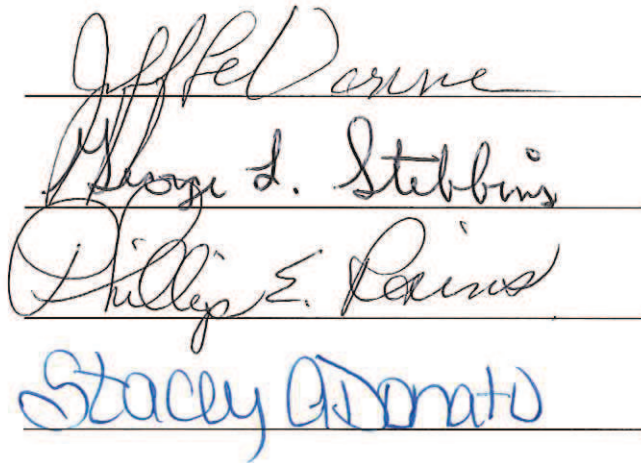 Jeff LeVarne
George L. Stebbins
Phillip E. Rains
Stacey A Donato